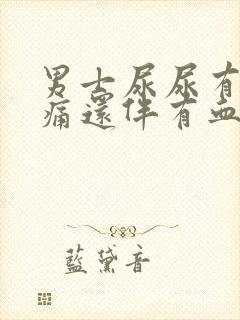 男士尿尿有
痛還伴有血
藍黛音